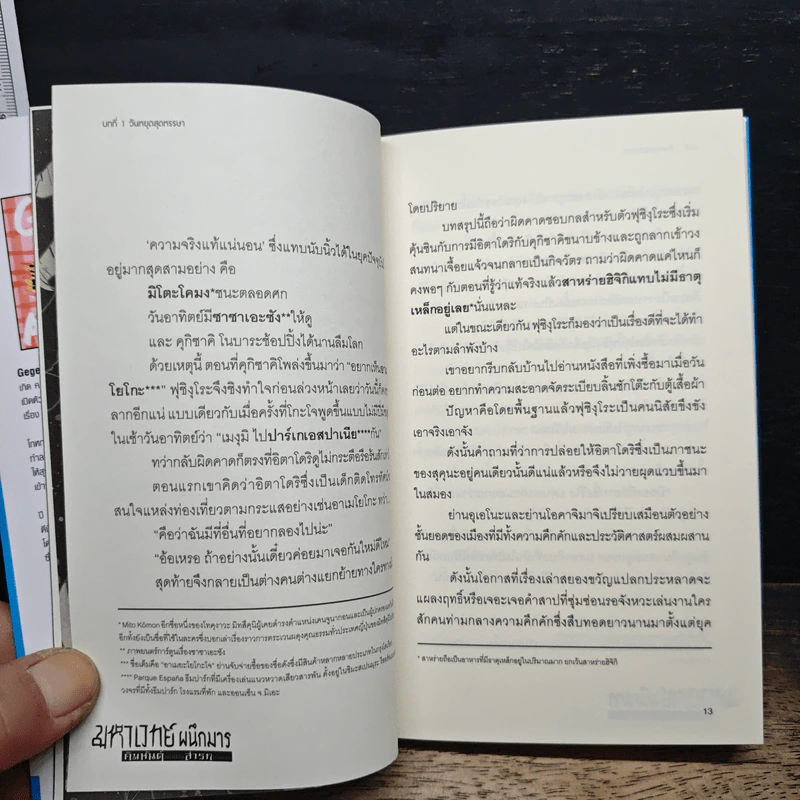 บทที่ 1 วันหยุดสุดหรรษา
'ความจริงแท้แน่นอน' ซึ่งแทบนับนิ้วได้ในยุคปัจจุบัน
อยู่มากสุดสามอย่าง คือ
มิโตะโคมง*ชนะตลอดศก
วันอาทิตย์มีซาซาเอะซัง**ให้ดู
และ คุกิซากิ โนบาระช้อปปิ้งได้นานลืมโลก
ด้วยเหตุนี้ ตอนที่คุกิซากิโพล่งขึ้นมาว่า "อยากเห็น
โยโกะ***" ฟุชิงุโระจึงชิงทำใจก่อนล่วงหน้าเลยว่าวันนี้
ลากอีกแน่ แบบเดียวกับเมื่อครั้งที่โกะโจพูดขึ้นแบบไม่มี
ในเช้าวันอาทิตย์ว่า "เมงุมิ ไปปาร์เกเอสปาเนีย****กัน"
ทว่ากลับผิดคาดก็ตรงที่อิตาโดริดูไม่กระตือรือร้นสัก
ตอนแรกเขาคิดว่าอิตาโดริซึ่งเป็นเด็กติดโทรทัศน์
สนใจแหล่งท่องเที่ยวตามกระแสอย่างเช่นอาเมโยโกะ ทว่า...
"คือว่าฉันมีที่อื่นที่อยากลองไปน่ะ"
"อ้อเหรอ ถ้าอย่างนั้นเดี๋ยวค่อยมาเจอกันใหม่ดีไหม"
สุดท้ายจึงกลายเป็นต่างคนต่างแยกย้ายทางใครทางมัน
* Mito Kōmon อีกชื่อหนึ่งของโทคุงาวะ มิทสึคุนิผู้เคยดำรงตำแหน่งเคนชูนากอนและเป็นผู้ปกครอง
อีกทั้งยังเป็นชื่อที่ใช้ในละครซึ่งบอกเล่าเรื่องราวการตระเวนผดุงคุณธรรมทั่วประเทศญี่ปุ่นของ
** ภาพยนตร์การ์ตูนเรื่องซาซาเอะซัง
*** ชื่อเต็มคือ "อาเมยะโยโกะโจ" ย่านจับจ่ายซื้อของชื่อดังซึ่งมีสินค้าหลากหลายประเภทในกรุงโตเกียว
**** Parque España ธีมปาร์กที่มีเครื่องเล่นแนวหวาดเสียวสารพัน ตั้งอยู่ในชิมะสเปนมุระ
วงจรที่มีทั้งธีมปาร์ก โรงแรมที่พัก และออนเซ็น จ.มิเอะ
มหาเวทย์ ผนึกมาร
โดยปริยาย
บทสรุปนี้ถือว่าผิดคาดชอบกลสำหรับตัวฟุชิงุโระซึ่งเริ่ม
คุ้นชินกับการมีอิตาโดริกับคุกิซากิขนาบข้างและถูกลากเข้าวง
สนทนาเจื้อยแจ้วจนกลายเป็นกิจวัตร ถามว่าผิดคาดแค่ไหนก็
คงพอๆ กับตอนที่รู้ว่าแท้จริงแล้วสาหร่ายฮิจิกิแทบไม่มีธาตุ
เหล็กอยู่เลย*นั่นแหละ
แต่ในขณะเดียวกัน ฟุชิงุโระก็มองว่าเป็นเรื่องดีที่จะได้ทำ
อะไรตามลำพังบ้าง
เขาอยากรีบกลับบ้านไปอ่านหนังสือที่เพิ่งซื้อมาเมื่อวัน
ก่อนต่อ อยากทำความสะอาดจัดระเบียบลิ้นชักโต๊ะกับตู้เสื้อผ้า
ปัญหาคือโดยพื้นฐานแล้วฟุชิงุโระเป็นคนนิสัยขึงขัง
เอาจริงเอาจัง
ดังนั้นคำถามที่ว่าการปล่อยให้อิตาโดริซึ่งเป็นภาชนะ
ของสุคุนะอยู่คนเดียวนั้นดีแน่แล้วหรือจึงไม่วายผุดแวบขึ้นมา
ในสมอง
ย่านอุเอโนะและย่านโอคาจิมาจิเปรียบเสมือนตัวอย่าง
ชั้นยอดของเมืองที่มีทั้งความคึกคักและประวัติศาสตร์ผสมผสาน
กัน
ดังนั้นโอกาสที่เรื่องเล่าสยองขวัญแปลกประหลาดจะ
แผลงฤทธิ์หรือเจอะเจอคำสาปที่ซุ่มซ่อนรอจังหวะเล่นงานใคร
สักคนท่ามกลางความคึกคักซึ่งสืบทอดยาวนานมาตั้งแต่ยุค
* สาหร่ายถือเป็นอาหารที่มีธาตุเหล็กอยู่ในปริมาณมาก ยกเว้นสาหร่ายฮิจิกิ
13